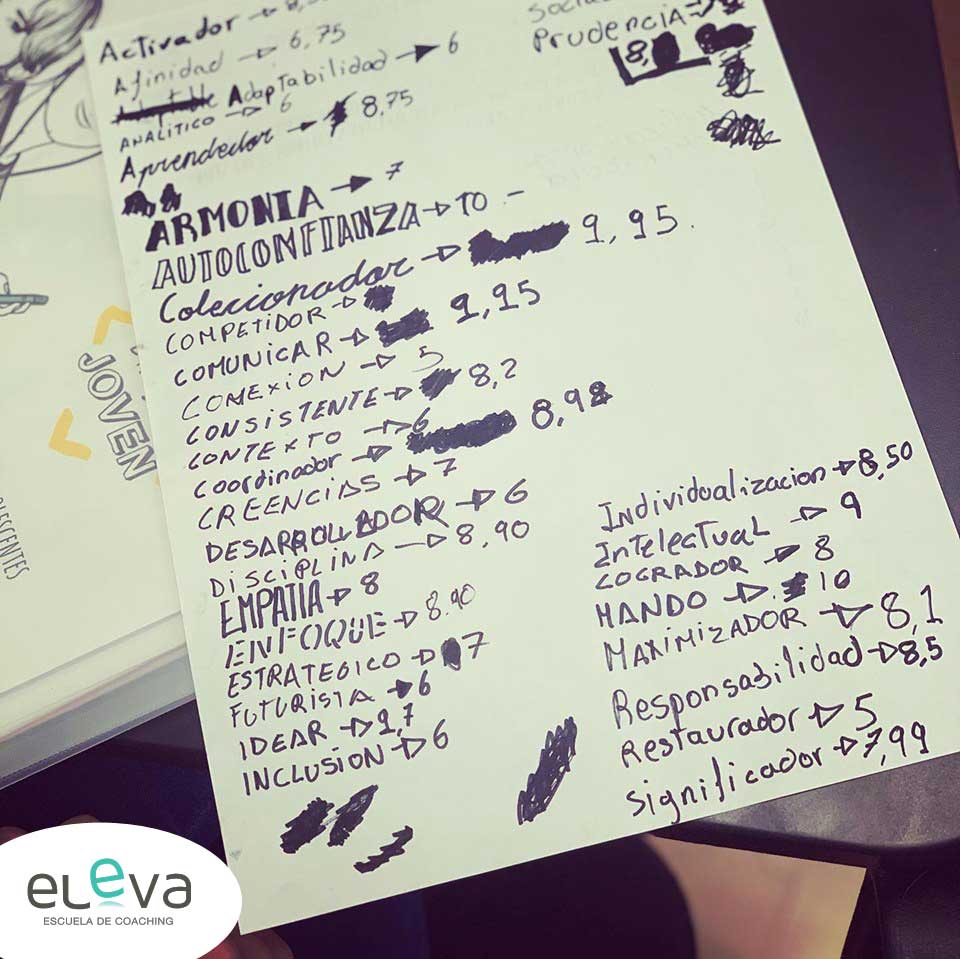 Activador
Afinidad → 6,75
Adaptabilidad → 6
ANALÍTICO → 6
Aprendedor → 8,75
ARMONIA → 7
AUTOCONFIANZA → 10 -
Colecionador → 9,95.
COMPETIDOR →
COMUNICAR → 9,95
CONEXION → 5
CONSISTENTE → 8,2
CONTEXTO → 6
Coordinador → 8,98
CREENCIAS → 7
DESARROLLADOR → 6
DISCIPLINA → 8,90
EMPATIA → 8
ENFOQUE → 8.90
ESTRATEGICO → 7
FUTURISTA → 6
IDEAR → 9,7
INCLUSION → 6
Prudencia →
8,
Individualizacion → 8,50
Intelectual → 9
LOGRADOR → 8
MANDO → 10
MAXIMIZADOR → 8,1
Responsabilidad → 8,5
Restaurador → 5
Significador → 7,99
JOVEN
eleva
ESCUELA DE COACHING